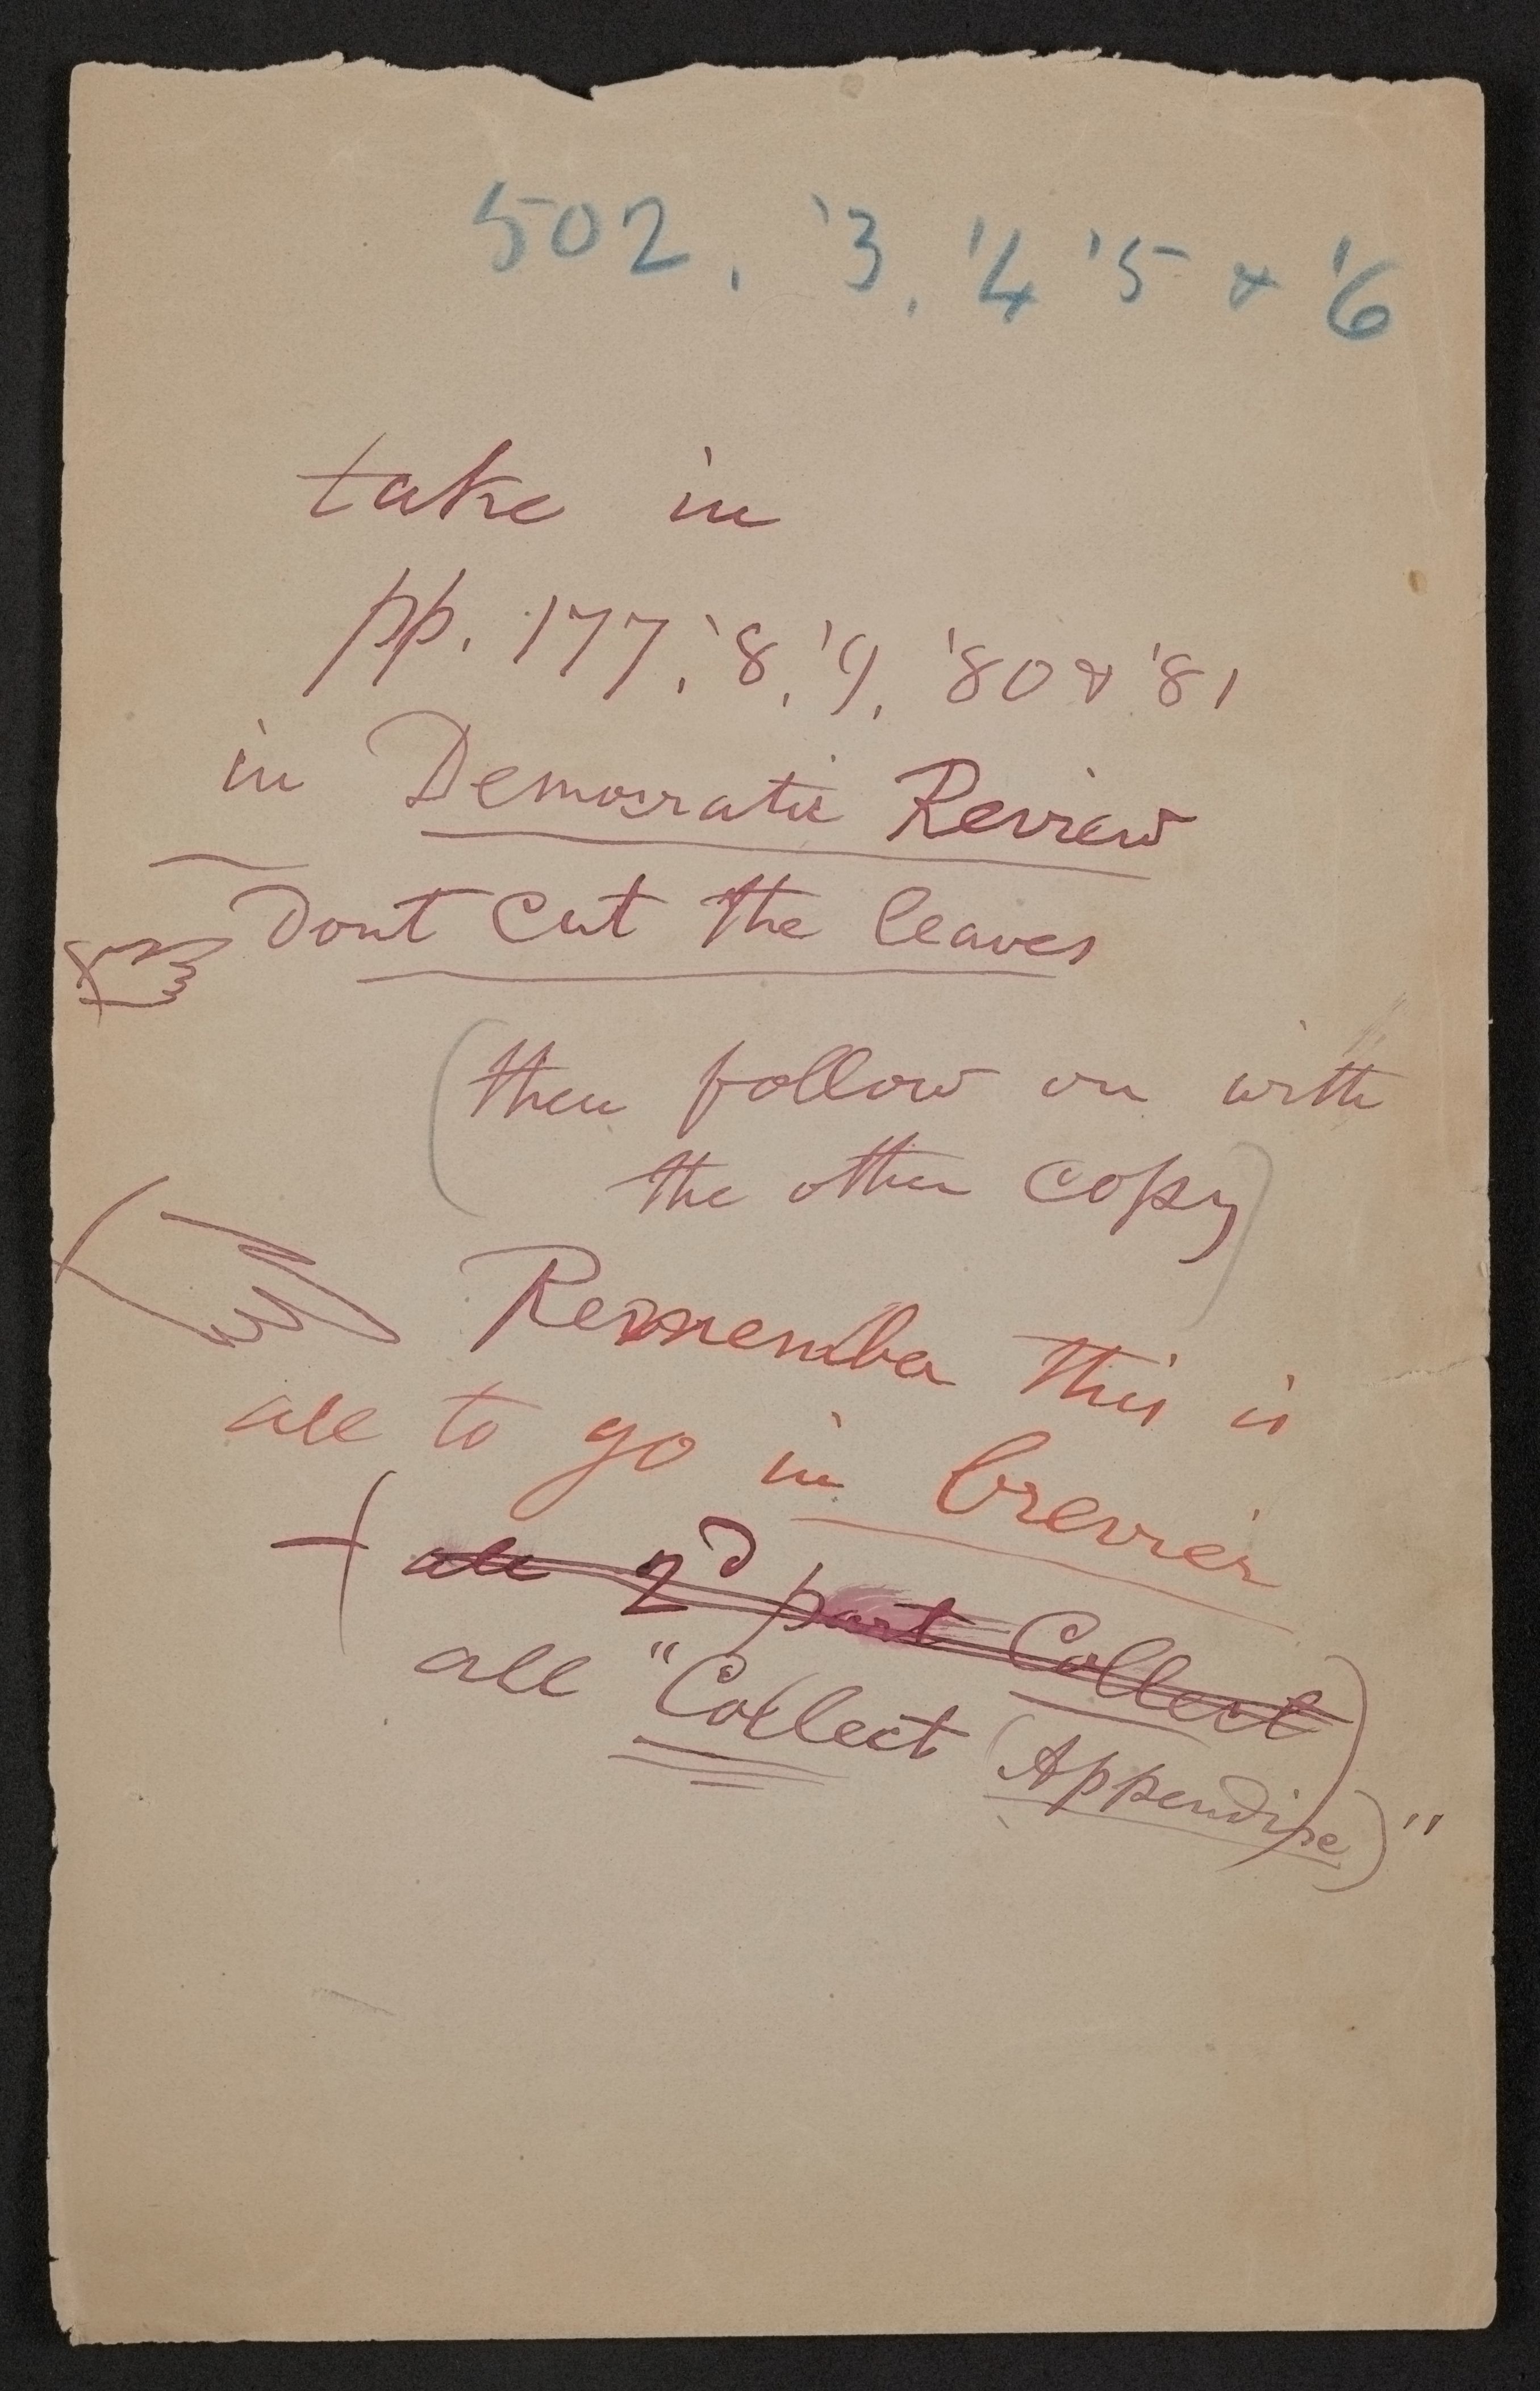 502, '3, '4 '5 & '6
take in
pp. 177, '8, '9, '80 & '81
in Democratic Review
Dont cut the leaves
(then follow on with
the other copy)
Remember this is
all to go in brevier
all 2d part Collect
all "Collect (Appendix)"